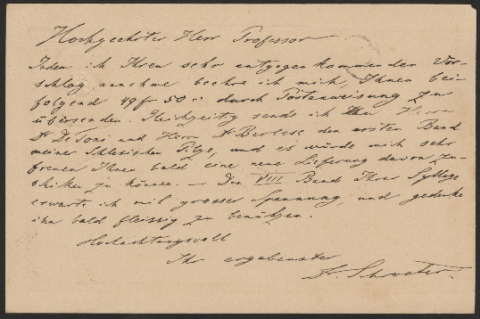 Hochgeehrter Herr Professor
Indem ich Ihren sehr entgegenkommenden Vor-
schlag annehme beehre ich mich, Ihnen bei-
folgend 49 fr 50 c durch Postanweisung zu
übersenden. Gleichzeitig sende ich Herrn
Dr De Toni und Herrn Dr Berlese den ersten Band
meiner Schlesischen Pilze, und es würde mich sehr
freuen Ihnen bald eine neue Lieferung davon zu-
schiken zu können. — Den VIII Band Ihrer Sylloge
erwarte ich mit grosser Spannung und gedenke
ihn bald fleissig zu benützen.
Hochachtungsvoll
Ihr ergebenster
Dr. Schroeter.